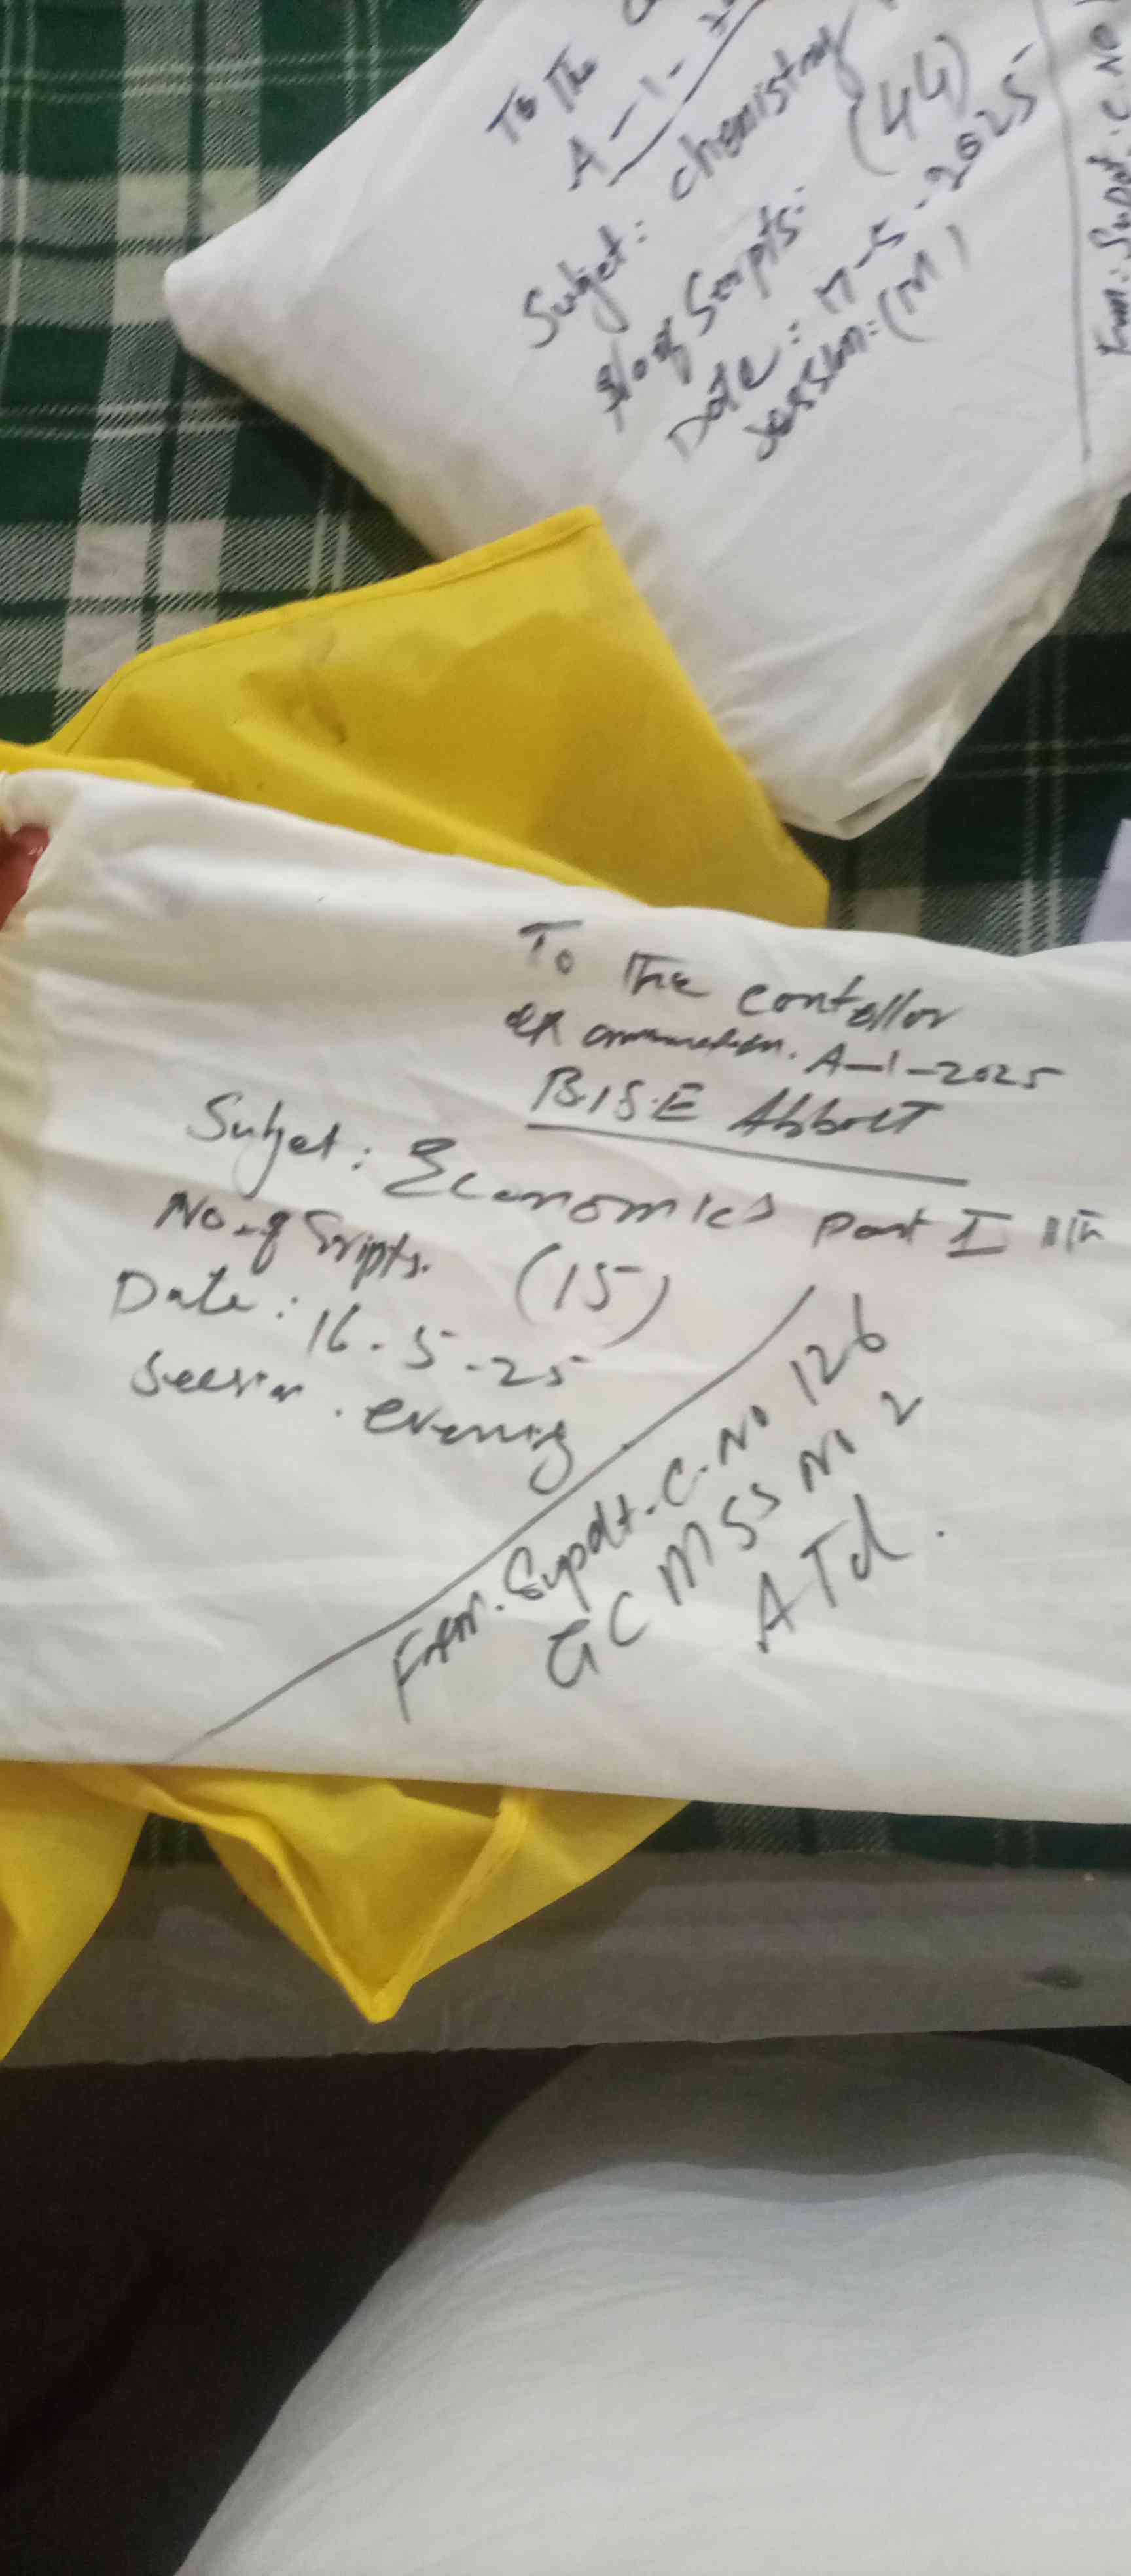 To The
A-1-
Subjet: chemistry
No of Scripts: (44)
Date: 17-5-2025
session: (M)
From: Supdt. C. No
To The contollor
of A-1-2025
B.I.S.E Abbott
Subjet: Economics part I 11th
No. of Scripts. (15)
Date: 16-5-25
Session. evening
From. Supdt. C. No 126
G C M S S No 2
A Td.